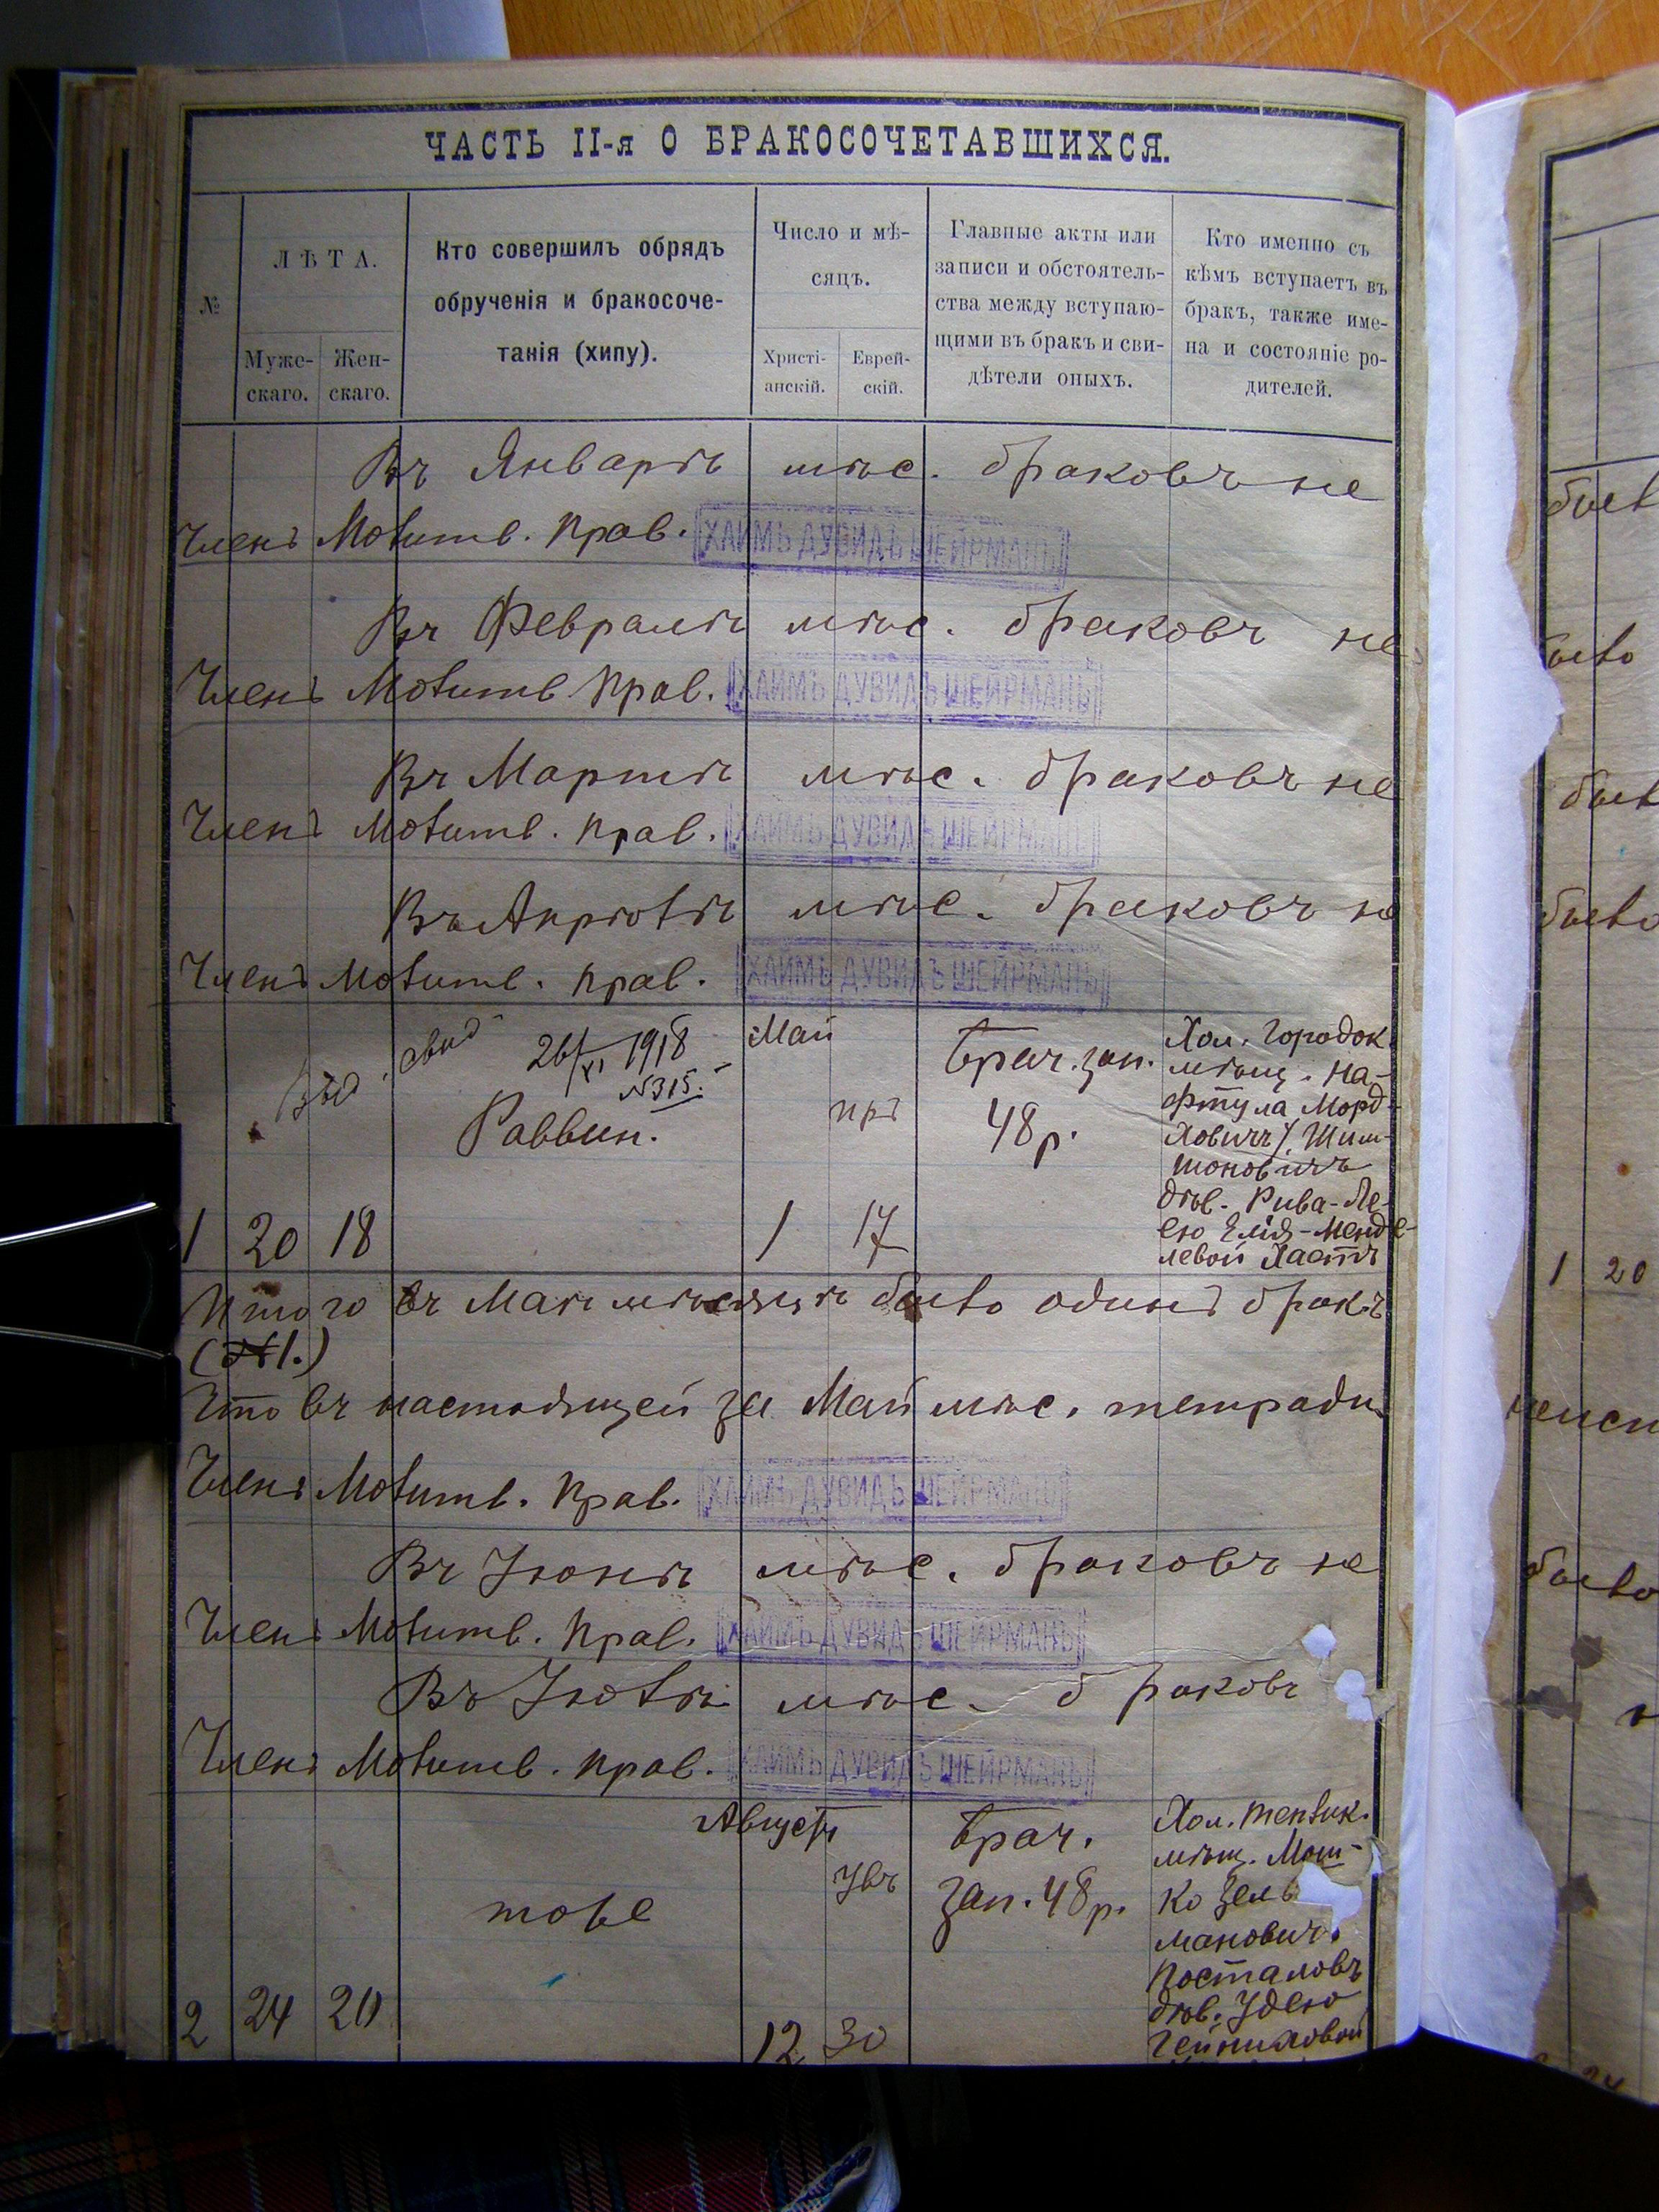 ЧАСТЬ II-я О БРАКОСОЧЕТАВШИХСЯ.
№
ЛѢТА.
Муже-
скаго.
Жен-
скаго.
Кто совершилъ обрядъ
обрученія и бракосоче-
танія (хипу).
Число и мѣ-
сяцъ.
Христі-
анскій.
Еврей-
скій.
Главные акты или
записи и обстоятель-
ства между вступаю-
щими въ бракъ и сви-
дѣтели оныхъ.
Кто именно съ
кѣмъ вступаетъ въ
бракъ, также име-
на и состояніе ро-
дителей.
Въ Январѣ мѣс. браковъ не
Членъ Молитв. Прав. ХАИМЪ ДУВИДЪ ШЕЙРМАНЪ
Въ Февралѣ мѣс. браковъ не
Членъ Молитв Прав. ХАИМЪ ДУВИДЪ ШЕЙРМАНЪ
Въ Мартѣ мѣс. браковъ не
Членъ Молитв. Прав. ХАИМЪ ДУВИДЪ ШЕЙРМАНЪ
Въ Апрѣлѣ мѣс. браковъ не
Членъ Молитв. Прав. ХАИМЪ ДУВИДЪ ШЕЙРМАНЪ
Выд. свид 26/XI 1918
№315.
Раввин.
Май
пръ
Брач. зап.
48 р.
Хол. Городок.
мѣщ. На-
фтула Морд-
ховичъ Шим-
шоновичъ
дѣв. Рива-Ле-
ею Еліа-Менде-
левой Хастъ
1 20 18 1 17
Итого въ Маѣ мѣсяцѣ было одинъ бракъ
(№1.)
Что въ настоящей за Май мѣс. тетради
Членъ Молитв. Прав. ХАИМЪ ДУВИДЪ ШЕЙРМАНЪ
Въ Іюнѣ мѣс. браковъ не
Членъ Молитв. Прав. ХАИМЪ ДУВИДЪ ШЕЙРМАНЪ
Въ Іюлѣ мѣс. браковъ
Членъ Молитв. Прав. ХАИМЪ ДУВИДЪ ШЕЙРМАНЪ
Августъ
Увъ
тоже
Брач.
зап. 48 р.
Хол. Теплик.
мѣщ. Мош-
ко Зель
мановичъ
Посталовъ
дѣв. Удею
2 24 20 12 30
было
1 20
было